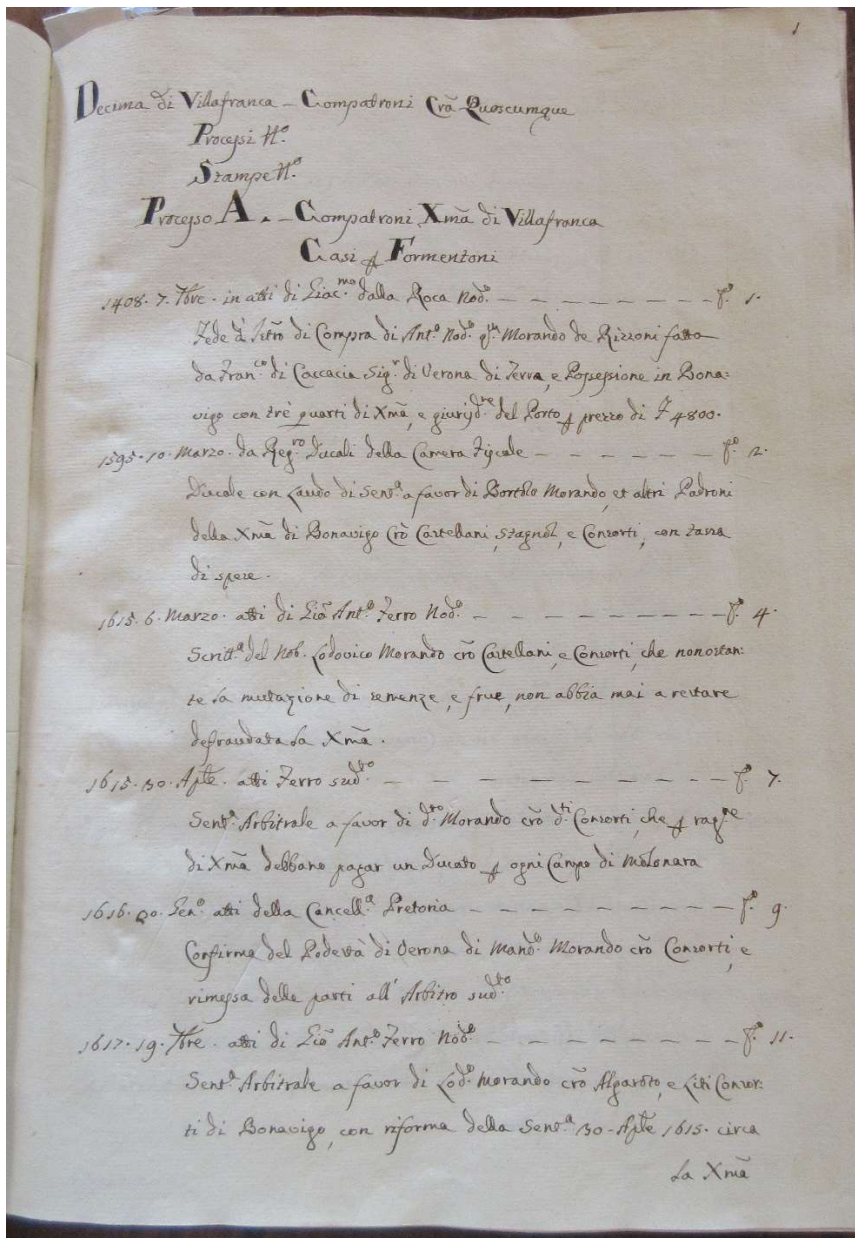 1
Decima di Villafranca - Compatroni Crã Quoscumque
Processi N.º
Stampe N.º
Processo A. - Compatroni Xmã di Villafranca
Casi Formentoni
1408. 7. 7bre. in atti di Giac.mo dalla Roca Nod.º - - - - - - - - - f.º 1.
Fede d'Istrõ di Compra di Ant.º Nod.º q.m Morando de Rizzoni fatta
da Fran.co di Caccacia Sig.r di Verona di Terra, e Possessione in Bona:
vigo con trè quarti di Xmã, e giurisd.ne del Porto p prezzo di 4800.
1595. 10. Marzo. da Reg.ro Ducali della Camera Fiscale - - - - - - - f.º 2.
Ducale con Laudo di Sent.a a favor di Bortõlo Morando, et altri Padroni
della Xmã di Bonavigo Crõ Castellani, Stagnol, e Consorti, con tassa
di spese.
1615. 6. Marzo. atti di Giõ Ant.º Ferro Nod.º - - - - - - - - - f.º 4.
Scritt.a del Nob. Lodovico Morando crõ Castellani, e Consorti, che nonostan:
te la mutazione di semenze, e frue, non abbia mai a restare
defraudata la Xmã.
1615. 30. Aple. atti Ferro sud.to - - - - - - - - - f.º 7.
Sent.a Arbitrale a favor di d.to Morando crõ d.ti Consorti, che p rag.ne
di Xmã debbano pagar un Ducato p ogni Campo di Melonara
1616. 20. Gen.º atti della Cancell.a Pretoria - - - - - - - - - f.º 9.
Confirma del Podestà di Verona di Mand.º Morando crõ Consorti, e
rimessa delle parti all'Arbitro sud.to
1617. 19. 7bre. atti di Giõ Ant.º Ferro Nod.º - - - - - - - - - f.º 11.
Sent.a Arbitrale a favor di Lod.º Morando crõ Algarotto, e Liti Consor:
ti di Bonavigo, con riforma della Sent.a 30. Aple 1615. circa
la Xmã